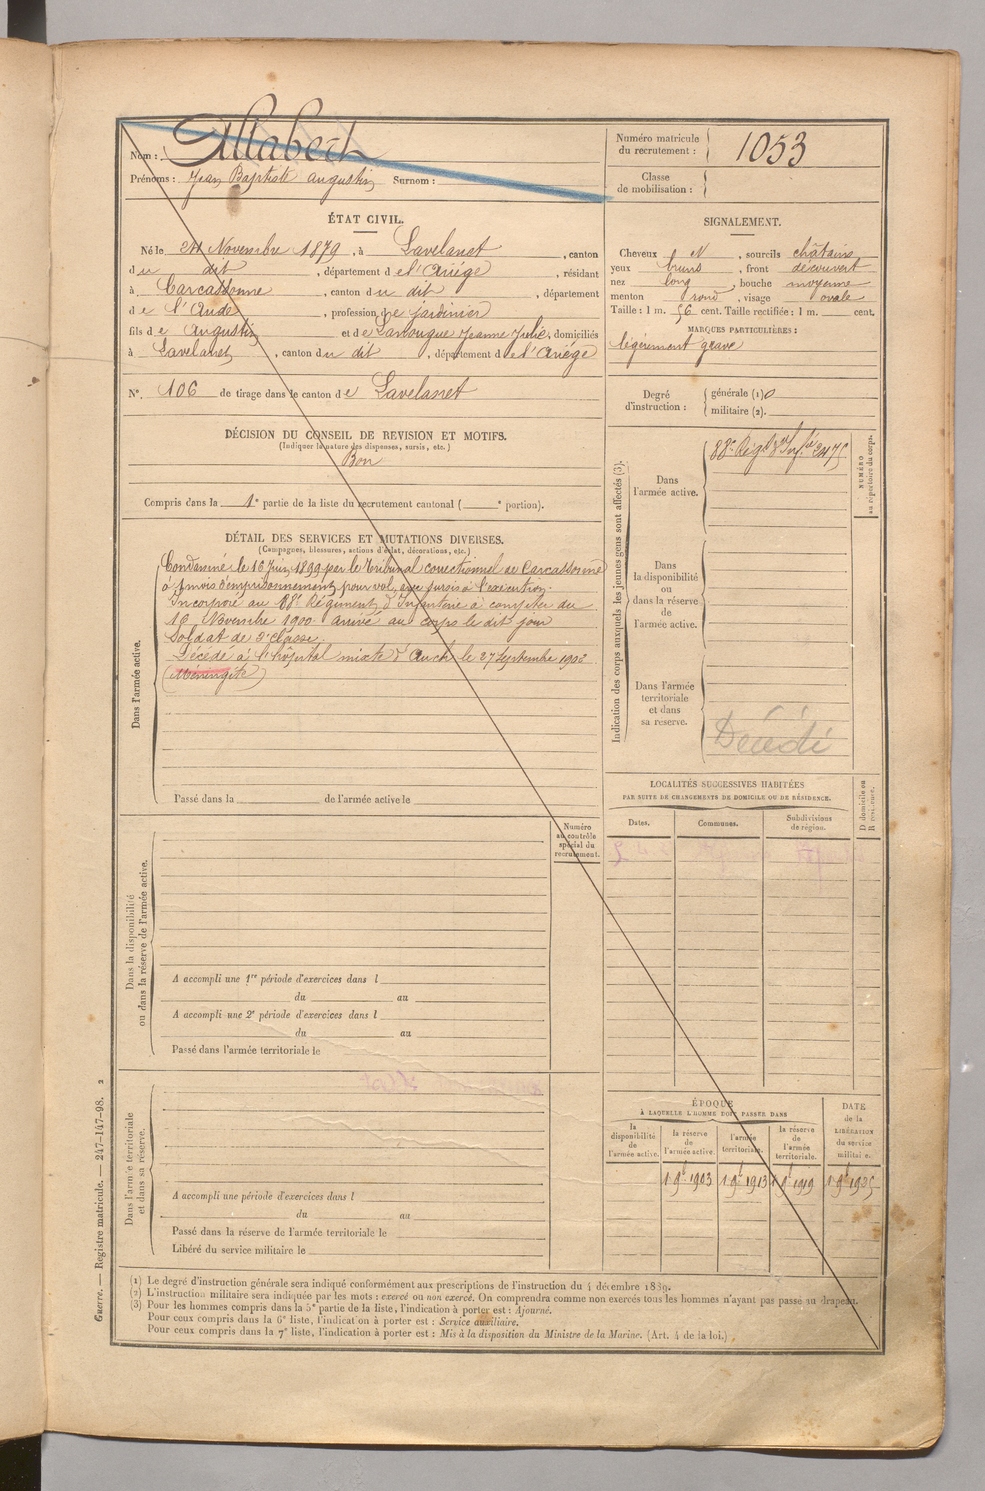 Nom : Alabert
Prénoms : Jean Baptiste Augustin Surnom :
Numéro matricule du recrutement : 1053
Classe de mobilisation :
ÉTAT CIVIL.
Né le Novembre 1879, à Lavelanet, canton
du dit, département de l'Ariège, résidant
à Carcassonne, canton du dit, département
de l'Aude, profession de jardinier
fils de Augustin et de Jeanne Julie, domiciliés
à Lavelanet, canton du dit, département de l'Ariège
N° 106 de tirage dans le canton de Lavelanet
SIGNALEMENT.
Cheveux N, sourcils châtains
yeux bruns, front découvert
nez long, bouche moyenne
menton rond, visage ovale
Taille : 1 m. 56 cent. Taille rectifiée : 1 m. cent.
MARQUES PARTICULIÈRES :
légèrement gravé
Degré d'instruction :
générale (1) 0
militaire (2).
DÉCISION DU CONSEIL DE REVISION ET MOTIFS.
(Indiquer la nature des dispenses, sursis, etc.)
Bon
Compris dans la 1e partie de la liste du recrutement cantonal ( e portion).
DÉTAIL DES SERVICES ET MUTATIONS DIVERSES.
(Campagnes, blessures, actions d'éclat, décorations, etc.)
Dans l'armée active.
Condamné le 16 Juin 1899 par le Tribunal correctionnel de Carcassonne
à 1 mois d'emprisonnement pour vol, avec sursis à l'exécution.
Incorporé au 88e Régiment d'Infanterie à compter du
16 Novembre 1900. Arrivé au corps le dit jour
Soldat de 2e classe.
Décédé à l'hôpital mixte d'Auch le 27 Septembre 1902
(Méningite)
Passé dans la de l'armée active le
Indication des corps auxquels les jeunes gens sont affectés (3).
Dans l'armée active.
88e Régt d'Infie 2475
NUMÉRO au répertoire du corps.
Dans la disponibilité ou dans la réserve de l'armée active.
Dans l'armée territoriale et dans sa réserve.
Décédé
LOCALITÉS SUCCESSIVES HABITÉES
PAR SUITE DE CHANGEMENTS DE DOMICILE OU DE RÉSIDENCE.
Dates. Communes. Subdivisions de région.
D domicile ou R résidence.
Numéro au contrôle spécial du recrutement.
Dans la disponibilité ou dans la réserve de l'armée active.
A accompli une 1re période d'exercices dans l
du au
A accompli une 2e période d'exercices dans l
du au
Passé dans l'armée territoriale le
Dans l'armée territoriale et dans sa réserve.
A accompli une période d'exercices dans l
du au
Passé dans la réserve de l'armée territoriale le
Libéré du service militaire le
ÉPOQUE
À LAQUELLE L'HOMME DOIT PASSER DANS
la disponibilité de l'armée active.
la réserve de l'armée active.
l'armée territoriale.
la réserve de l'armée territoriale.
DATE de la LIBÉRATION du service militaire.
1 9b 1903 1 9b 1913 1 9b 1919 1 9b 1925
Guerre. — Registre matricule. — 247-147-98. 2
(1) Le degré d'instruction générale sera indiqué conformément aux prescriptions de l'instruction du 4 décembre 1889.
(2) L'instruction militaire sera indiquée par les mots : exercé ou non exercé. On comprendra comme non exercés tous les hommes n'ayant pas passé au drapeau.
(3) Pour les hommes compris dans la 5e partie de la liste, l'indication à porter est : Ajourné.
Pour ceux compris dans la 6e liste, l'indication à porter est : Service auxiliaire.
Pour ceux compris dans la 7e liste, l'indication à porter est : Mis à la disposition du Ministre de la Marine. (Art. 4 de la loi.)